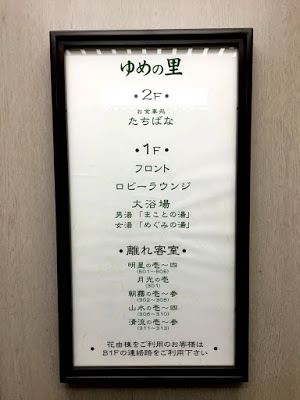 ゆめの里
・2F・
お食事処
たちばな
・1F・
フロント
ロビーラウンジ
大浴場
男湯「まことの湯」
女湯「めぐみの湯」
・離れ客室・
明星の壱〜四
(501〜506)
月光の壱
(301)
朝霧の壱〜参
(302〜305)
山水の壱〜四
(306〜310)
清流の壱〜参
(311〜313)
・花由檪をご利用のお客様は・
B1Fの連絡路をご利用下さい